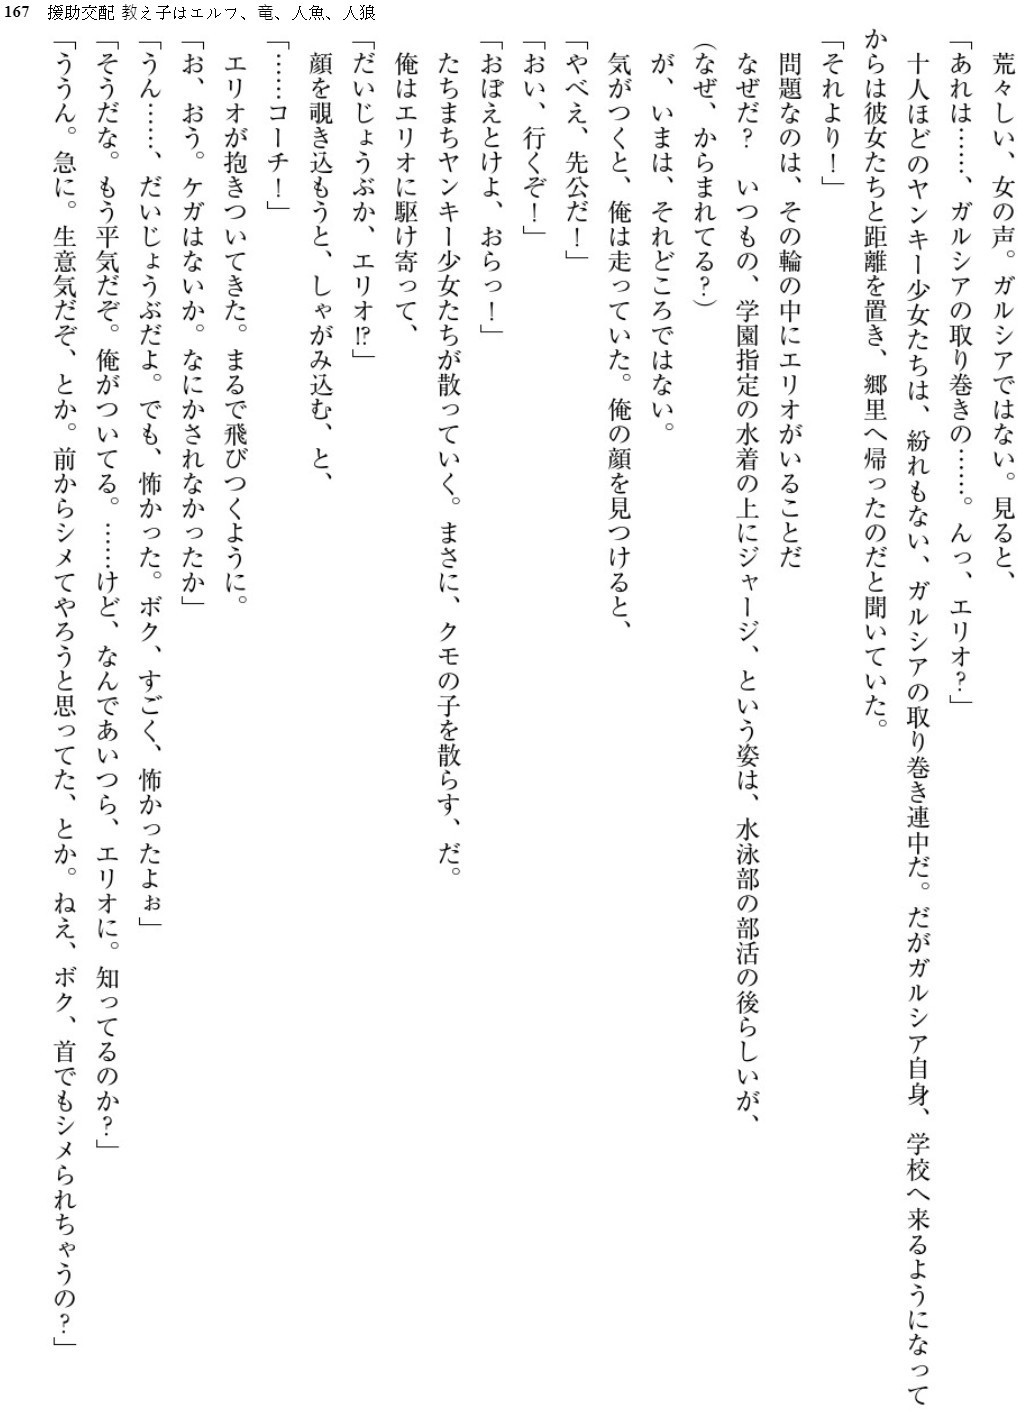 167 援助交配 教え子はエルフ、竜、人魚、人狼
荒々しい、女の声。ガルシアではない。見ると、
「あれは……、ガルシアの取り巻きの……。んっ、エリオ？」
十人ほどのヤンキー少女たちは、紛れもない、ガルシアの取り巻き連中だ。だがガルシア自身、学校へ来るようになって
からは彼女たちと距離を置き、郷里へ帰ったのだと聞いていた。
「それより！」
問題なのは、その輪の中にエリオがいることだ
なぜだ？　いつもの、学園指定の水着の上にジャージ、という姿は、水泳部の部活の後らしいが、
（なぜ、からまれてる？）
が、いまは、それどころではない。
気がつくと、俺は走っていた。俺の顔を見つけると、
「やべえ、先公だ！」
「おい、行くぞ！」
「おぼえとけよ、おらっ！」
たちまちヤンキー少女たちが散っていく。まさに、クモの子を散らす、だ。
俺はエリオに駆け寄って、
「だいじょうぶか、エリオ!?」
顔を覗き込もうと、しゃがみ込む、と、
「……コーチ！」
エリオが抱きついてきた。まるで飛びつくように。
「お、おう。ケガはないか。なにかされなかったか」
「うん……、だいじょうぶだよ。でも、怖かった。ボク、すごく、怖かったよぉ」
「そうだな。もう平気だぞ。俺がついてる。……けど、なんであいつら、エリオに。知ってるのか？」
「ううん。急に。生意気だぞ、とか。前からシメてやろうと思ってた、とか。ねえ、ボク、首でもシメられちゃうの？」